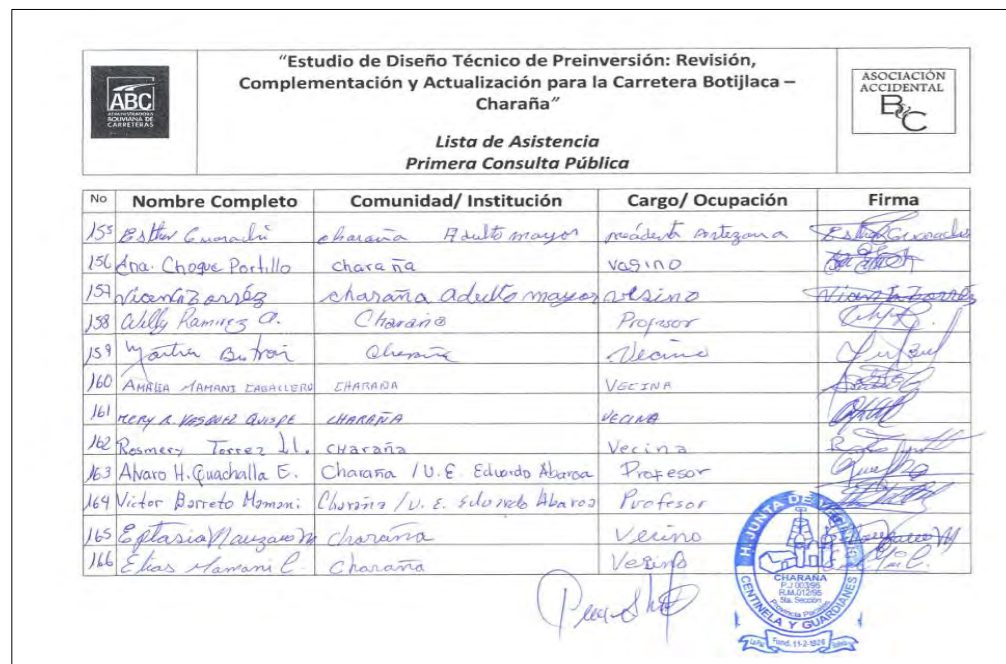 "Estudio de Diseño Técnico de Preinversión: Revisión,
Complementación y Actualización para la Carretera Botijlaca –
Charaña"
Lista de Asistencia
Primera Consulta Pública
ABC
ADMINISTRADORA
BOLIVIANA DE
CARRETERAS
ASOCIACIÓN
ACCIDENTAL
ByC
No Nombre Completo Comunidad/ Institución Cargo/ Ocupación Firma
155 Esther Guarachi charaña Adulto mayor Artezana
156 Ana. Choque Portillo charaña vasino
157 Vicenta Zarréz charaña adulto mayor vesino
158 Willy Ramirez A. Charaña Profesor
159 Butrón Charaña Vecino
160 AMALIA MAMANI CABALLERO CHARAÑA VECINA
161 MERY R. VASQUEZ QUISPE CHARAÑA VECINA
162 Rosmery Torrez Ll. CHaraña Vecina
163 Alvaro H. Guachalla E. Charaña / U.E. Eduardo Abaroa Profesor
164 Victor Barreto Mamani Charaña / U. E. Eduardo Abaroa Profesor
165 charaña Vecino
166 Elias Mamani C. Charaña Vesino
H. JUNTA DE VECINOS
CHARAÑA
P.J 003/95
R.M.012/95
5ta. Sección
Provincia Pacajes
CENTINELA Y GUARDIANES
La Paz Fund. 11-2-1926 Bolivia